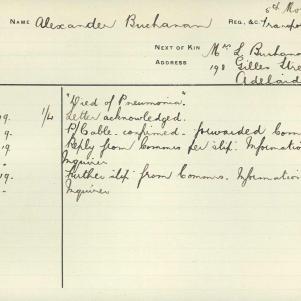 6th Mo
NAME Alexander Buchanan REG., &C. Transpo
NEXT OF KIN Mrs L Buchana
ADDRESS 198 Gilles Stre
Adelaid
"Died of Pneumonia".
19. 1/4 Letter acknowledged.
9. P/Cable confirmed. forwarded Com
19 Reply from Commrs per slip. Information
Inquirer
19. Further slip from Commrs. Information
Inquirer